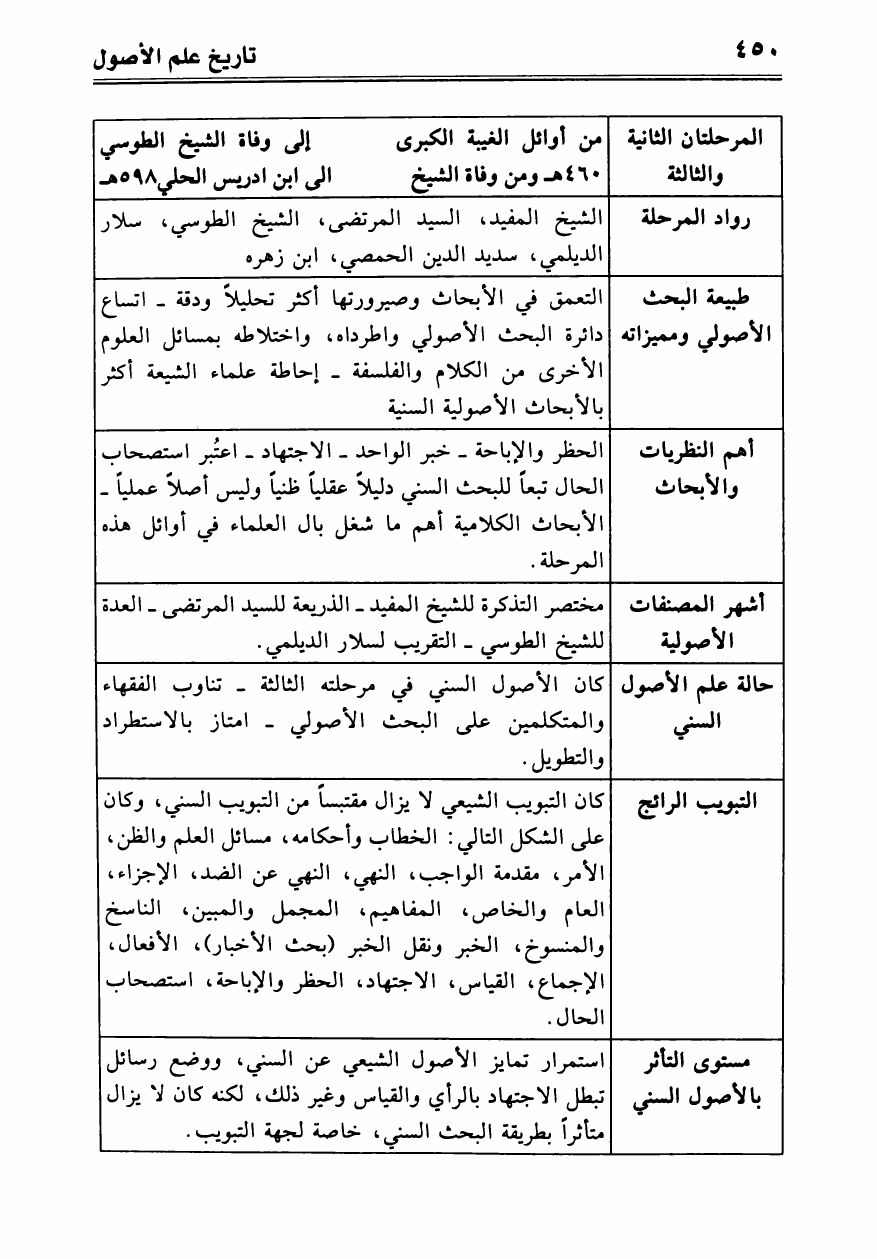 ٤٥٠
تاريخ علم الأصول
المرحلتان الثانية
والثالثة
من أوائل الغيبة الكبرى إلى وفاة الشيخ الطوسي
٤٦٠هـ ومن وفاة الشيخ الى ابن ادريس الحلي٥٩٨هـ
رواد المرحلة
الشيخ المفيد، السيد المرتضى، الشيخ الطوسي، سلار
الديلمي، سديد الدين الحمصي، ابن زهره
طبيعة البحث
الأصولي ومميزاته
التعمق في الأبحاث وصيرورتها أكثر تحليلاً ودقة - اتساع
دائرة البحث الأصولي واطرداه، واختلاطه بمسائل العلوم
الأخرى من الكلام والفلسفة - إحاطة علماء الشيعة أكثر
بالأبحاث الأصولية السنية
أهم النظريات
والأبحاث
الحظر والإباحة - خبر الواحد - الاجتهاد - اعتُبر استصحاب
الحال تبعاً للبحث السني دليلاً عقلياً ظنياً وليس أصلاً عملياً -
الأبحاث الكلامية أهم ما شغل بال العلماء في أوائل هذه
المرحلة.
أشهر المصنفات
الأصولية
مختصر التذكرة للشيخ المفيد - الذريعة للسيد المرتضى - العدة
للشيخ الطوسي - التقريب لسلار الديلمي.
حالة علم الأصول
السني
كان الأصول السني في مرحلته الثالثة - تناوب الفقهاء
والمتكلمين على البحث الأصولي - امتاز بالاستطراد
والتطويل.
التبويب الرائج
كان التبويب الشيعي لا يزال مقتبساً من التبويب السني، وكان
على الشكل التالي: الخطاب وأحكامه، مسائل العلم والظن،
الأمر، مقدمة الواجب، النهي، النهي عن الضد، الإجزاء،
العام والخاص، المفاهيم، المجمل والمبين، الناسخ
والمنسوخ، الخبر ونقل الخبر (بحث الأخبار)، الأفعال،
الإجماع، القياس، الاجتهاد، الحظر والإباحة، استصحاب
الحال.
مستوى التأثر
بالأصول السني
استمرار تمايز الأصول الشيعي عن السني، ووضع رسائل
تبطل الاجتهاد بالرأي والقياس وغير ذلك، لكنه كان لا يزال
متأثراً بطريقة البحث السني، خاصة لجهة التبويب.